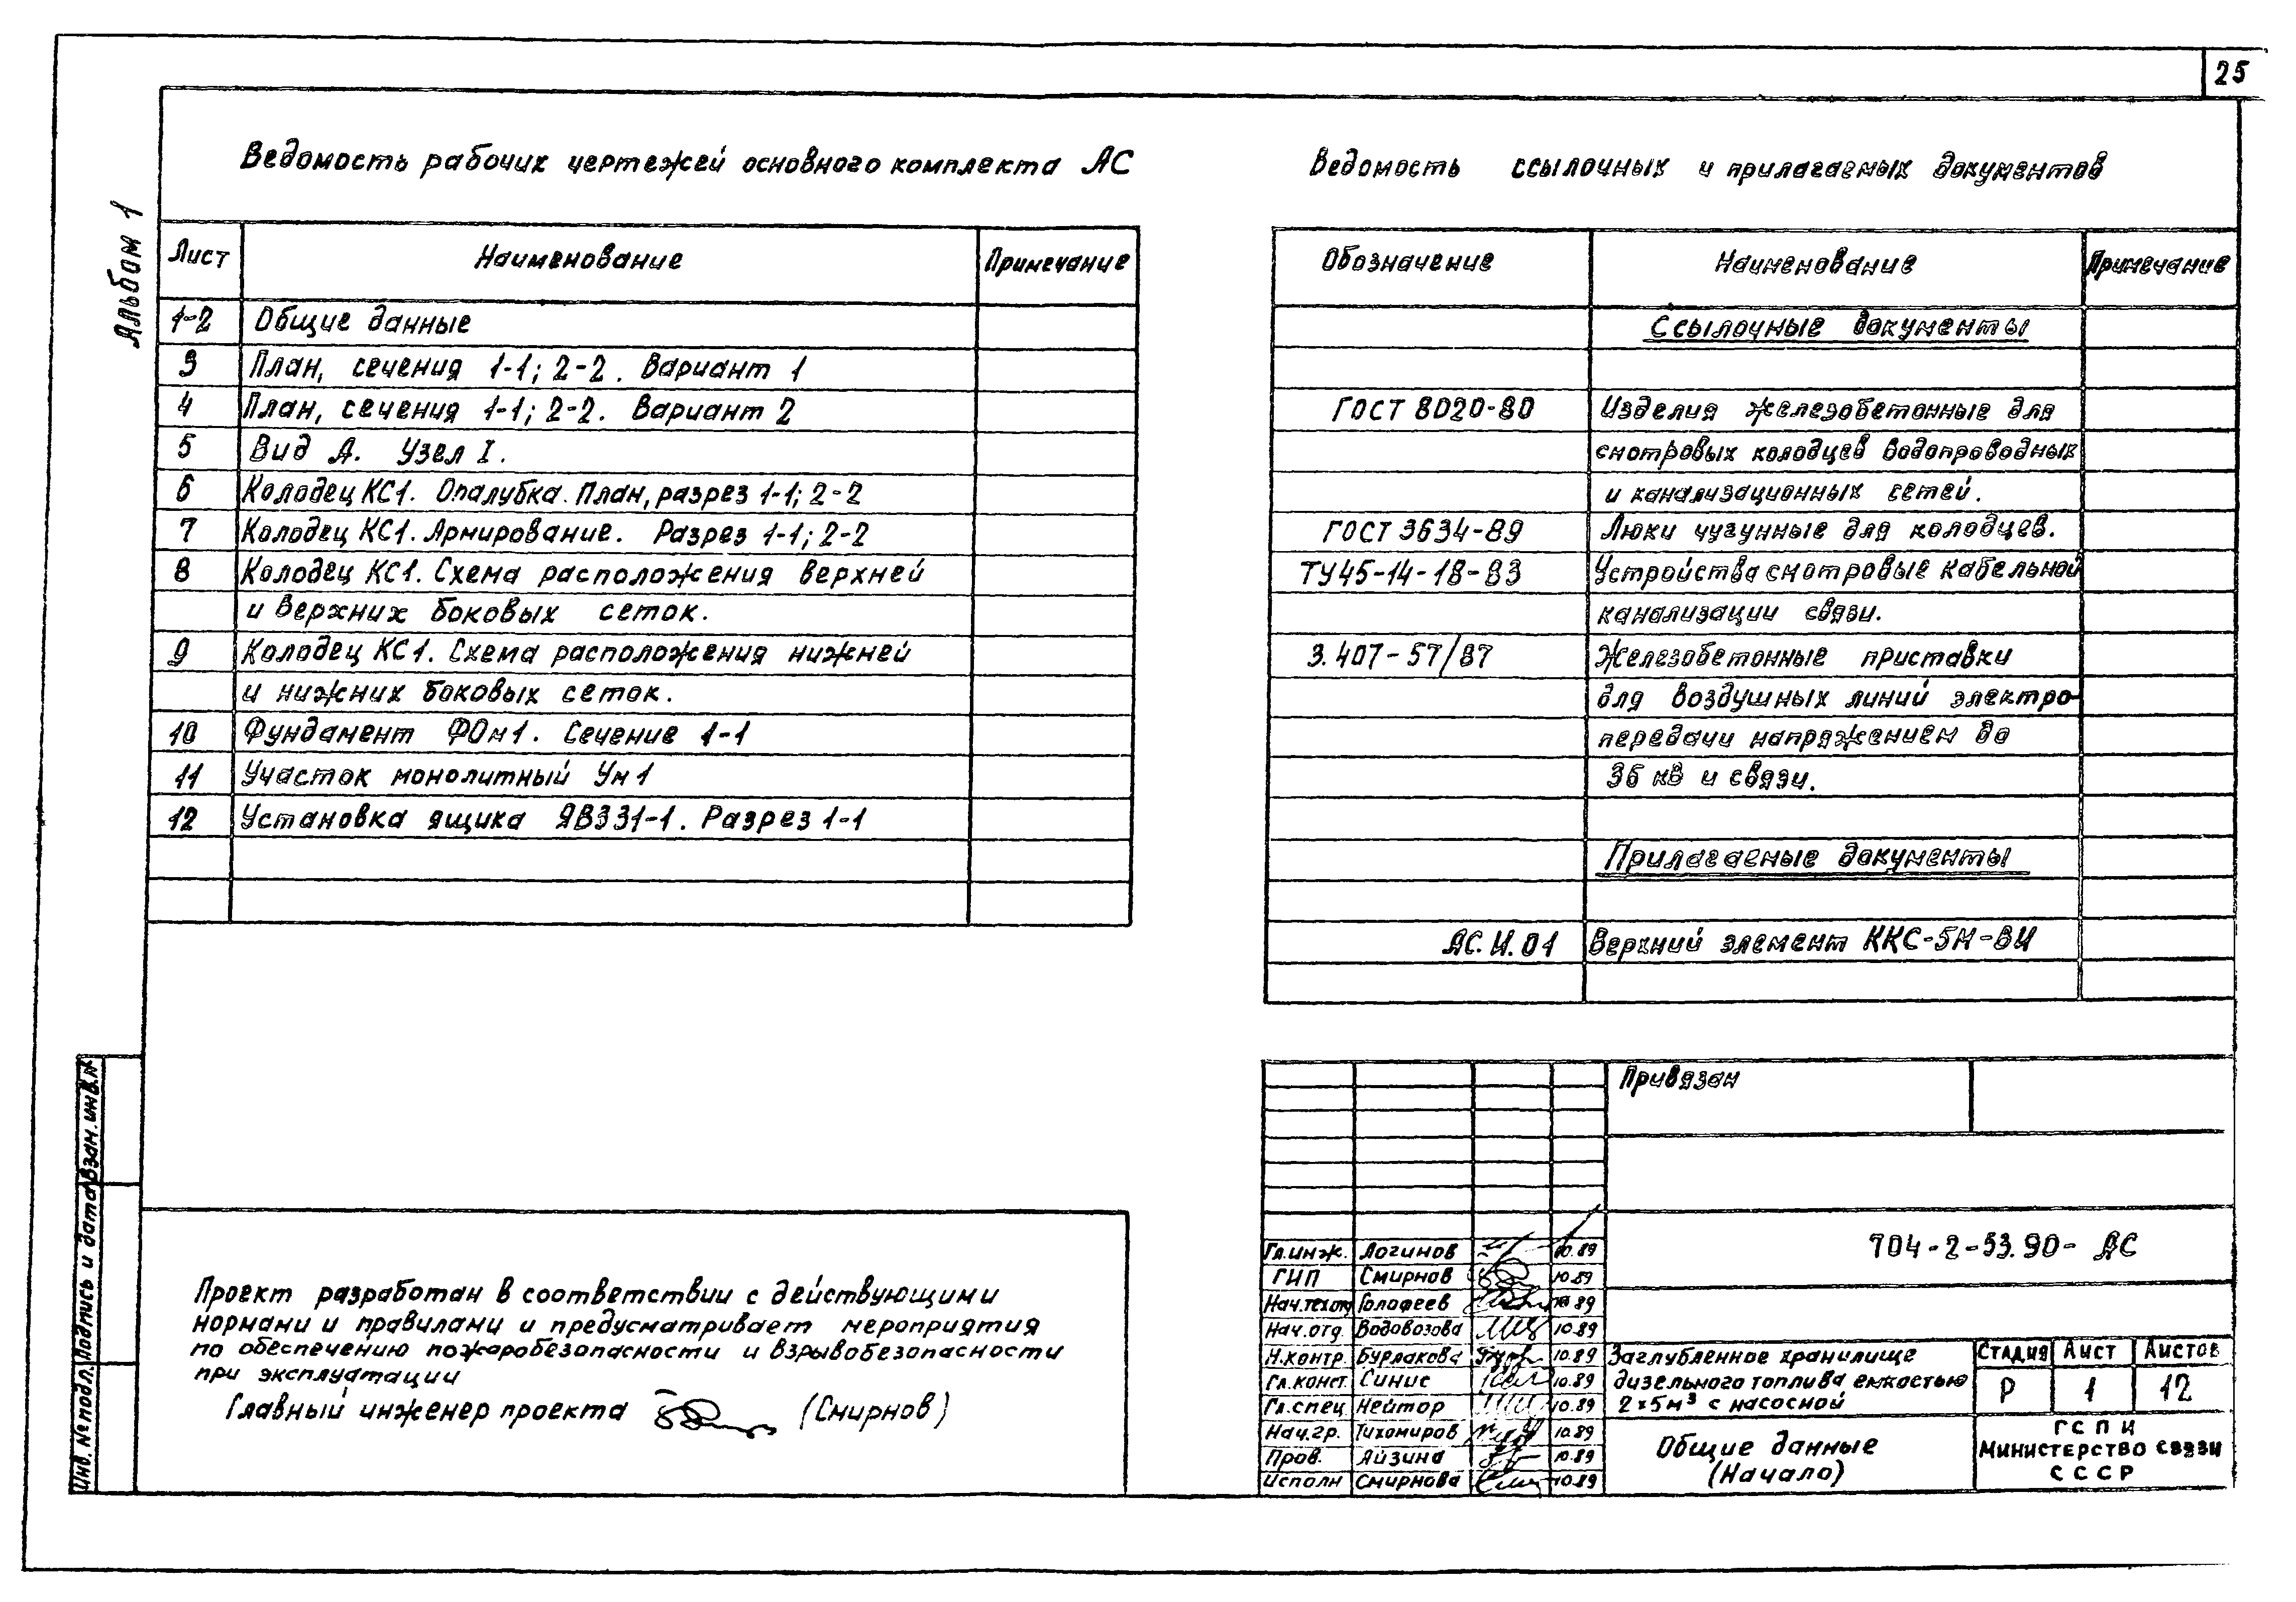 25
Альбом 1
Ведомость рабочих чертежей основного комплекта АС
Лист Наименование Примечание
1-2 Общие данные
3 План, сечения 1-1; 2-2. Вариант 1
4 План, сечения 1-1; 2-2. Вариант 2
5 Вид А. Узел I.
6 Колодец КС1. Опалубка. План, разрез 1-1; 2-2
7 Колодец КС1. Армирование. Разрез 1-1; 2-2
8 Колодец КС1. Схема расположения верхней
и верхних боковых сеток.
9 Колодец КС1. Схема расположения нижней
и нижних боковых сеток.
10 Фундамент ФОм1. Сечение 1-1
11 Участок монолитный Ум1
12 Установка ящика ЯВЗ31-1. Разрез 1-1
Ведомость ссылочных и прилагаемых документов
Обозначение Наименование Примечание
Ссылочные документы
ГОСТ 8020-80 Изделия железобетонные для
смотровых колодцев водопроводных
и канализационных сетей.
ГОСТ 3634-89 Люки чугунные для колодцев.
ТУ45-14-18-83 Устройства смотровые кабельной
канализации связи.
3.407-57/87 Железобетонные приставки
для воздушных линий электро-
передачи напряжением до
35 кв и связи.
Прилагаемые документы
АС.И.01 Верхний элемент ККС-5М-ВИ
Проект разработан в соответствии с действующими
нормами и правилами и предусматривает мероприятия
по обеспечению пожаробезопасности и взрывобезопасности
при эксплуатации
Главный инженер проекта (Смирнов)
Взам. инв. №
Подпись и дата
Инв. № подл.
Привязан
704-2-53.90- АС
Гл.инж. Логинов 10.89
ГИП Смирнов 10.89
Нач.техот Голофеев 10.89
Нач.отд. Водовозова 10.89
Н.контр. Бурлакова 10.89
Гл.конст. Синис 10.89
Гл.спец Нейтор 10.89
Нач.гр. Тихомиров 10.89
Пров. Айзина 10.89
Исполн Смирнова 10.89
Заглубленное хранилище
дизельного топлива емкостью
2×5м³ с насосной
Стадия Лист Листов
Р 1 12
Общие данные
(Начало)
ГСПИ
Министерство связи
СССР